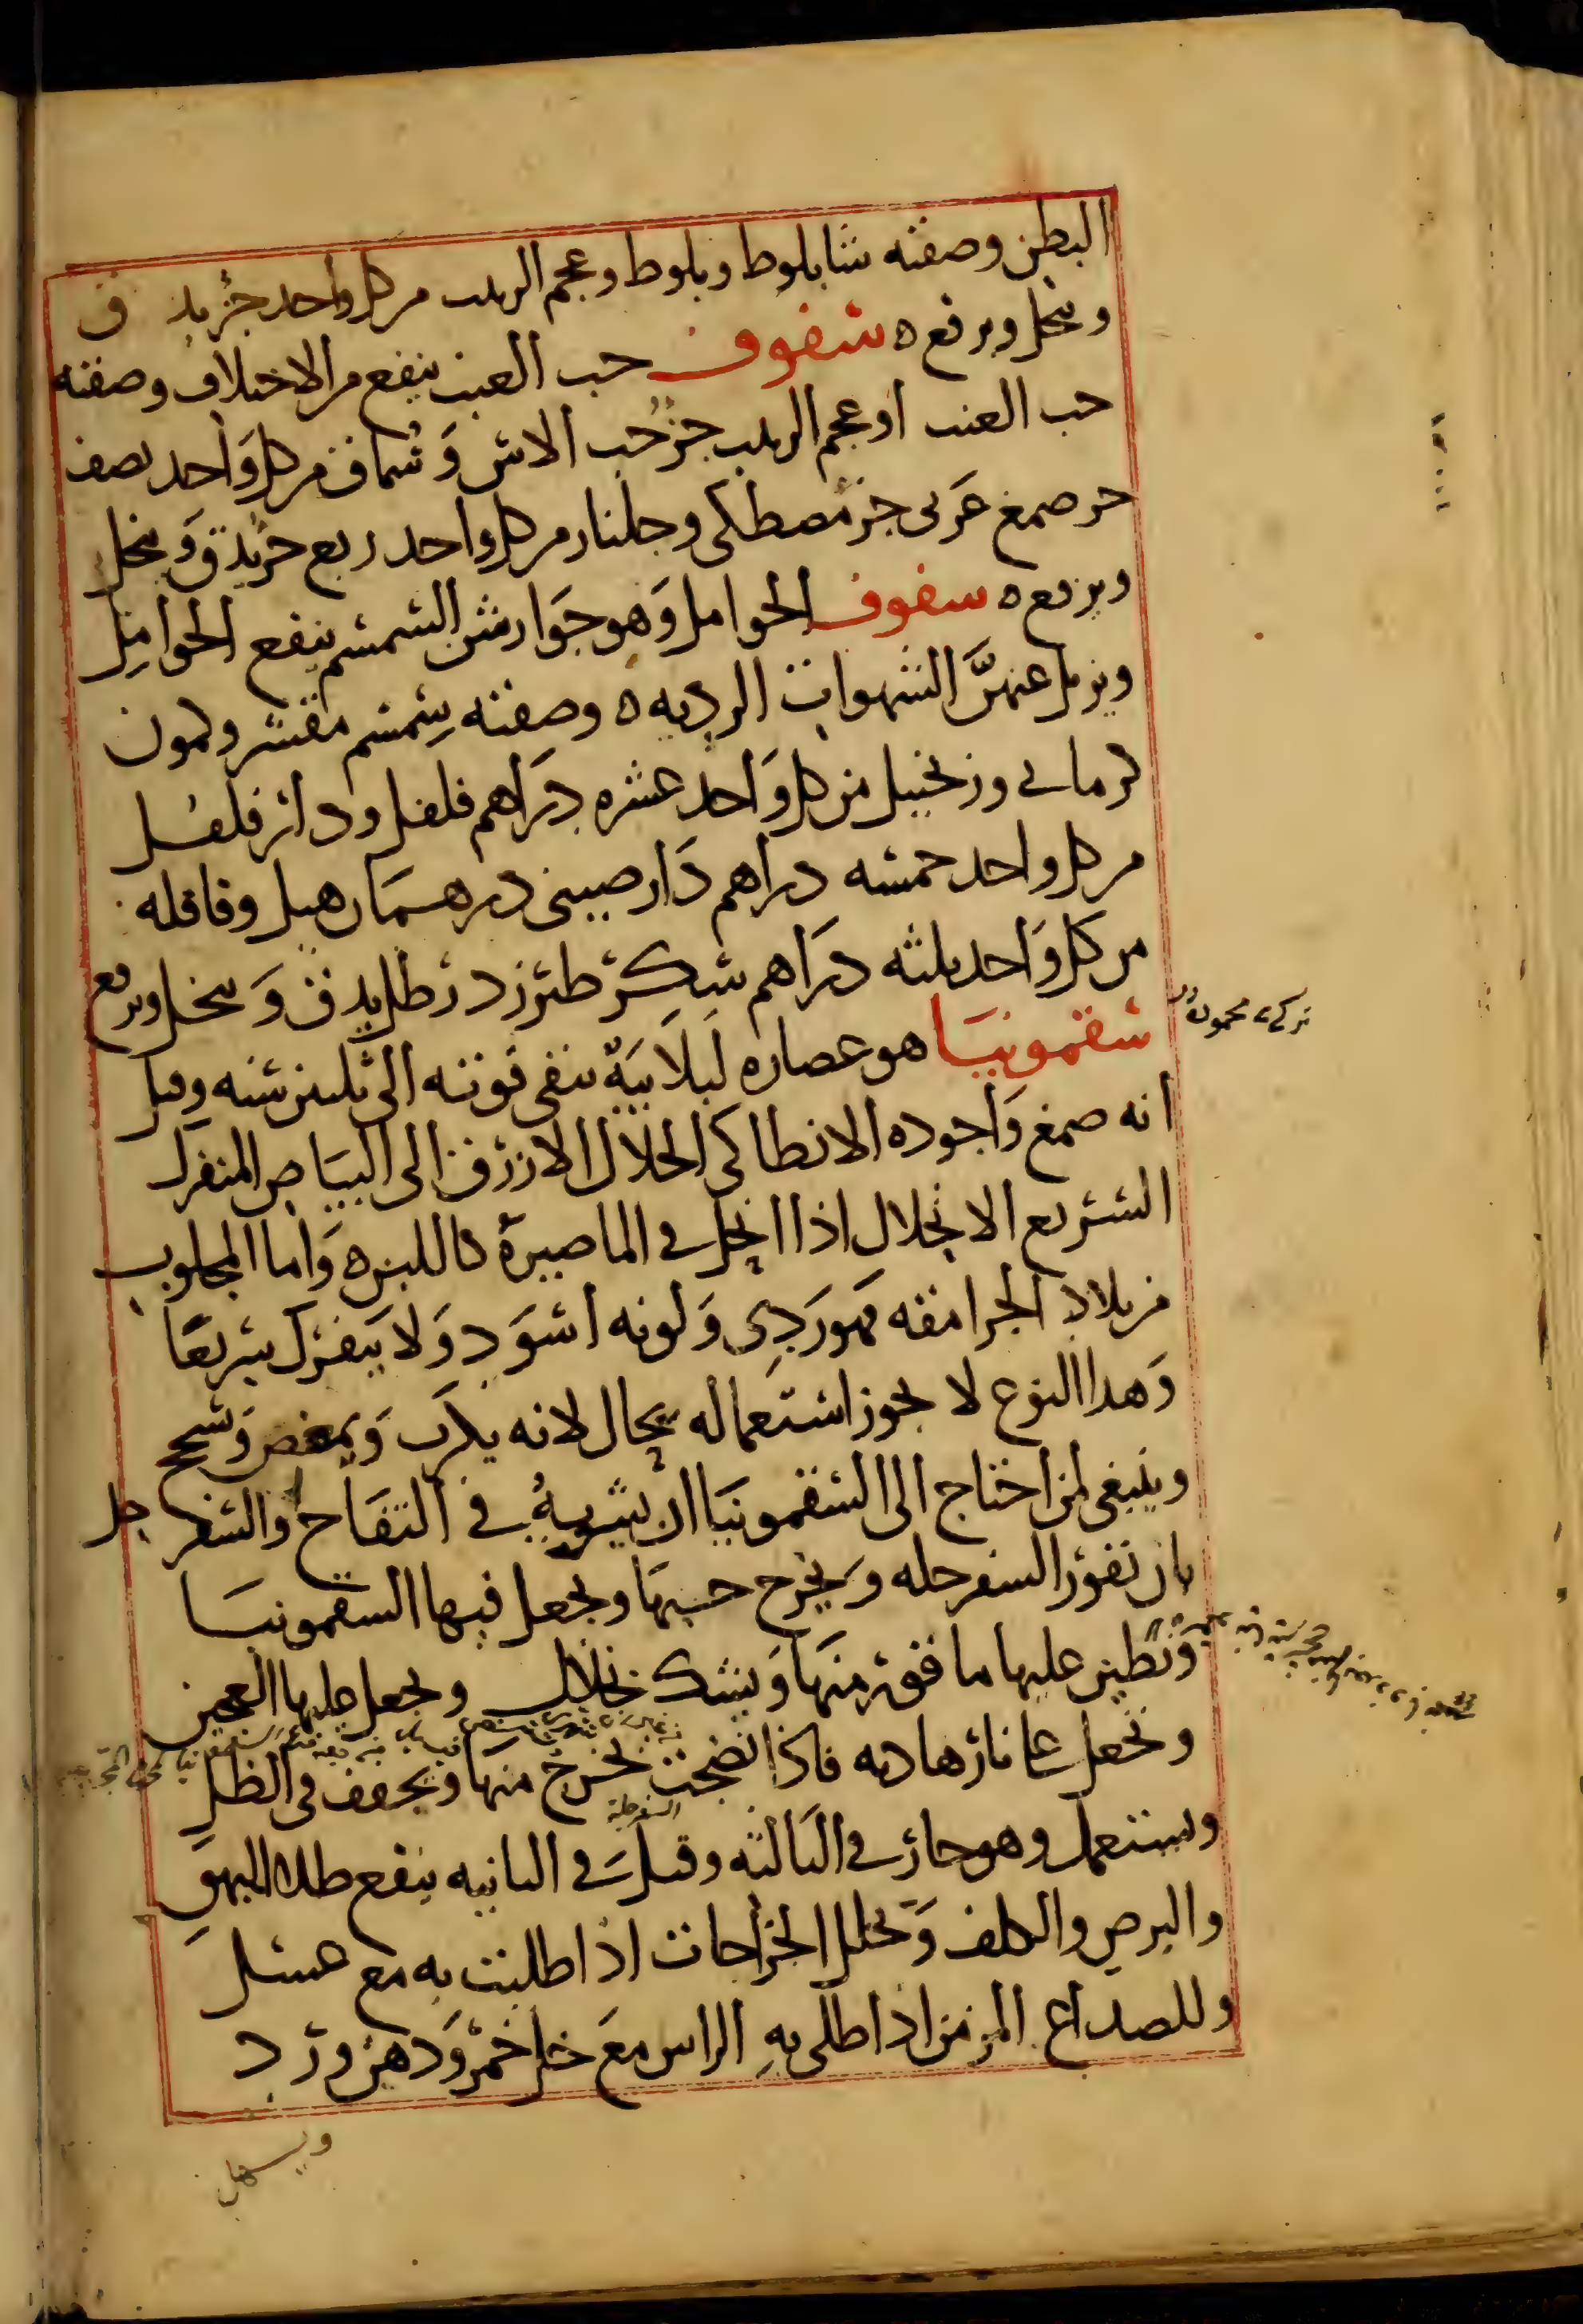 البطن وصفته شابلوط وبلوط وعجم الزبيب من كل واحد جزء يدق
وينخل ويرفع ه سفوف حب العنب ينفع من الاختلاف وصفته
حب العنب او عجم الزبيب جزء حب الاس وسماق من كل واحد نصف
جزء صمغ عربي جزء مصطكي وجلنار من كل واحد ربع جزء يدق وينخل
ويرفع ه سفوف الحوامل وهو جوارش السمسم ينفع الحوامل
ويزيل عنهن الشهوات الرديه ه وصفته سمسم مقشر وكمون
كرماني وزنجبيل من كل واحد عشره دراهم فلفل ودار فلفل
من كل واحد خمسه دراهم دار صيني درهمان هيل وقاقله
من كل واحد ثلثه دراهم سكر طبرزد رطل يدق وينخل ويرفع
تركي محموده
سقمونيا هو عصاره لبلابية تبقى قوته الى ثلثين سنه وقيل
انه صمغ واجوده الانطاكي الحلال الازرق الى البياض المتفرك
السريع الانحلال اذا انحل في الما صيره كاللبن ه واما المجلوب
من بلاد الجرامقه فهو ردي ولونه اسود ولا يتفرك سريعا
وهذا النوع لا يجوز استعماله بحال لانه يكرب ويمغص ويسحج
وينبغي لمن احتاج الى السقمونيا ان يشويه في التفاح والسفرجل
بان تقور السفرجله ويخرج حبها ويجعل فيها السقمونيا
وتطبق عليها ما قور منها ويشك بخلال ويجعل عليها العجين
وتجعل على نار هاديه فاذا نضجت تخرج منها ويجفف في الظل
السفرجلة
ويستعمل وهو حار في الثالثه وقيل في الثانيه ينفع طلاه البهق
والبرص والكلف ويحلل الخراجات اذا طليت به مع عسل
وللصداع المزمن اذا طلي به الراس مع خل خمر ودهن ورد
ويسهل